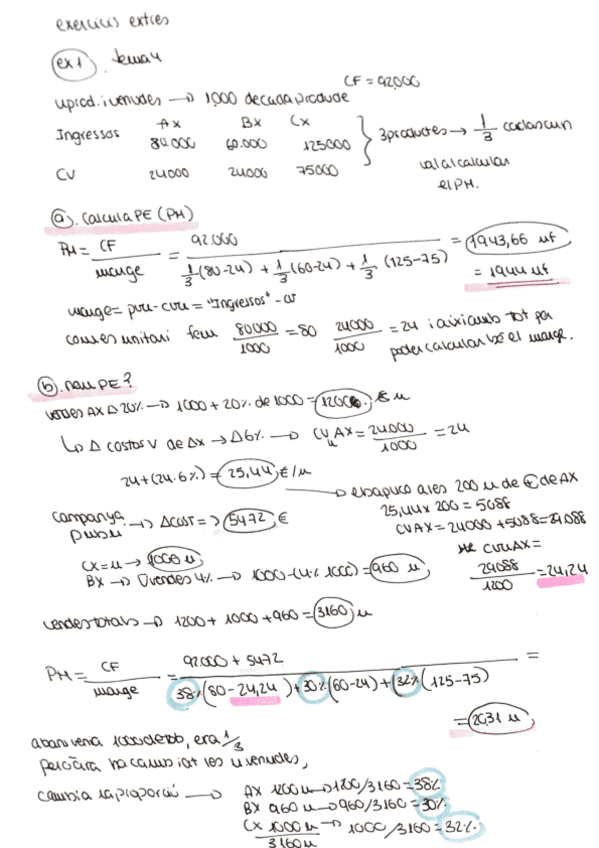 exercicis extres
ex1. tema 4
CF = 92.000
u prod. i venudes → 1.000 de cada producte
AX BX CX
Ingressos 80.000 60.000 125000
CV 24000 24000 75000
3 productes → 1/3 cadascun
cal al calcular
el PM.
a). calcula PE (PM)
PM = CF / marge = 92.000 / 1/3 (80-24) + 1/3 (60-24) + 1/3 (125-75) = 1943,66 uf
= 1944 uf
marge = pvu - cvu = "Ingressos" - cv
com es unitari fem 80.000/1000 = 80 24000/1000 = 24 i així amb tot per
poder calcular bé el marge.
b). nou PE?
vendes AX Δ 20% → 1000 + 20% de 1000 = 1200 u
↳ Δ costos V de AX → Δ 6% → CVu AX = 24.000/1000 = 24
24 + (24 · 6%) = 25,44 €/u
→ els 200 u de AX
25,44 x 200 = 5088
CVAX = 24000 + 5088 = 29.088
campanya → Δ cost => 5472 €
cvu AX =
29088/1200 = 24,24
CX = u → 1000 u
BX → ∇ vendes 4% → 1000 - (4% 1000) = 960 u
vendes totals → 1200 + 1000 + 960 = 3160 u
PM = CF / marge = 92.000 + 5472 / 38% (80 - 24,24) + 30% (60-24) + 32% (125-75) =
= 2031 u
abans venia 1000 de tot, era 1/3
però ara ha canviat les u venudes,
canvia la proporció → AX 1200 u → 1200/3160 = 38%
BX 960 u → 960/3160 = 30%
CX 1000 u → 1000/3160 = 32%
3160 u